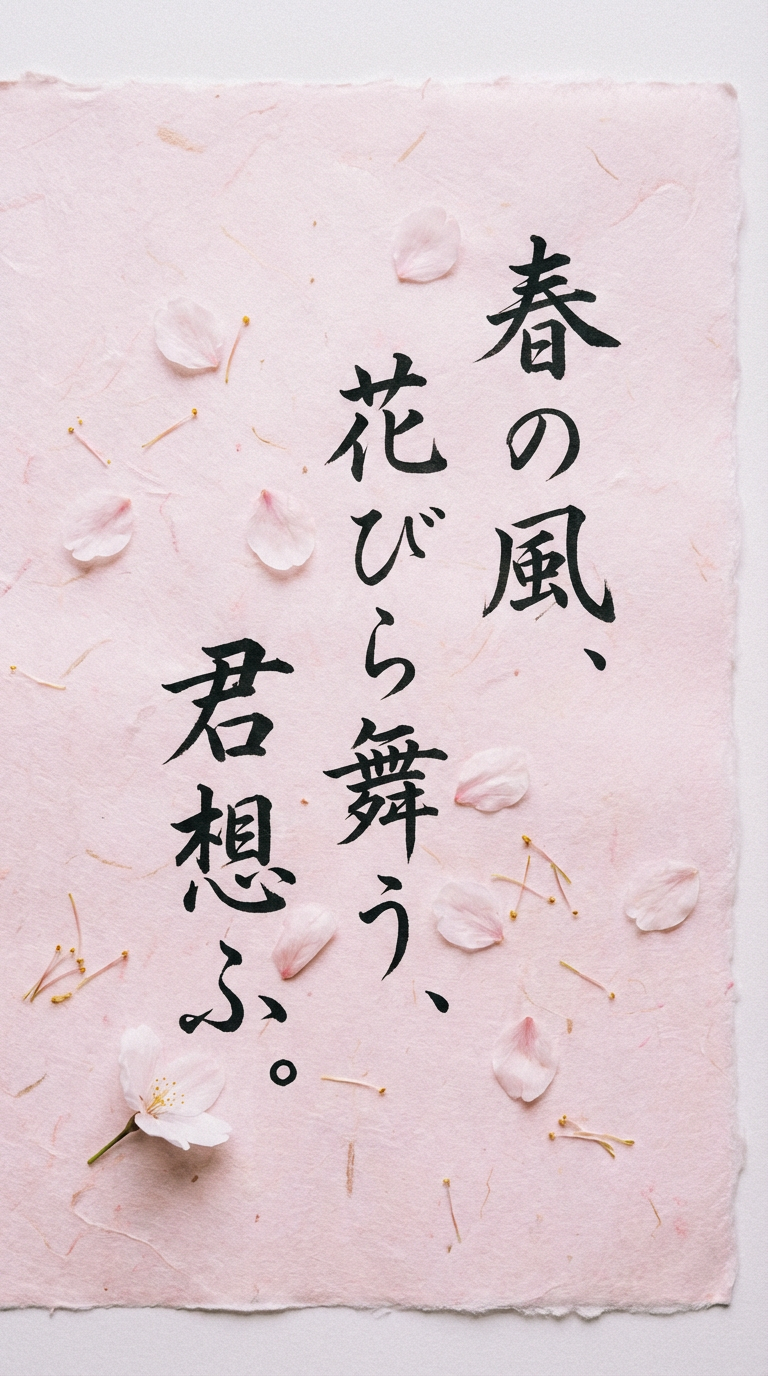 春の風、
花びら舞う、
君想ふ。